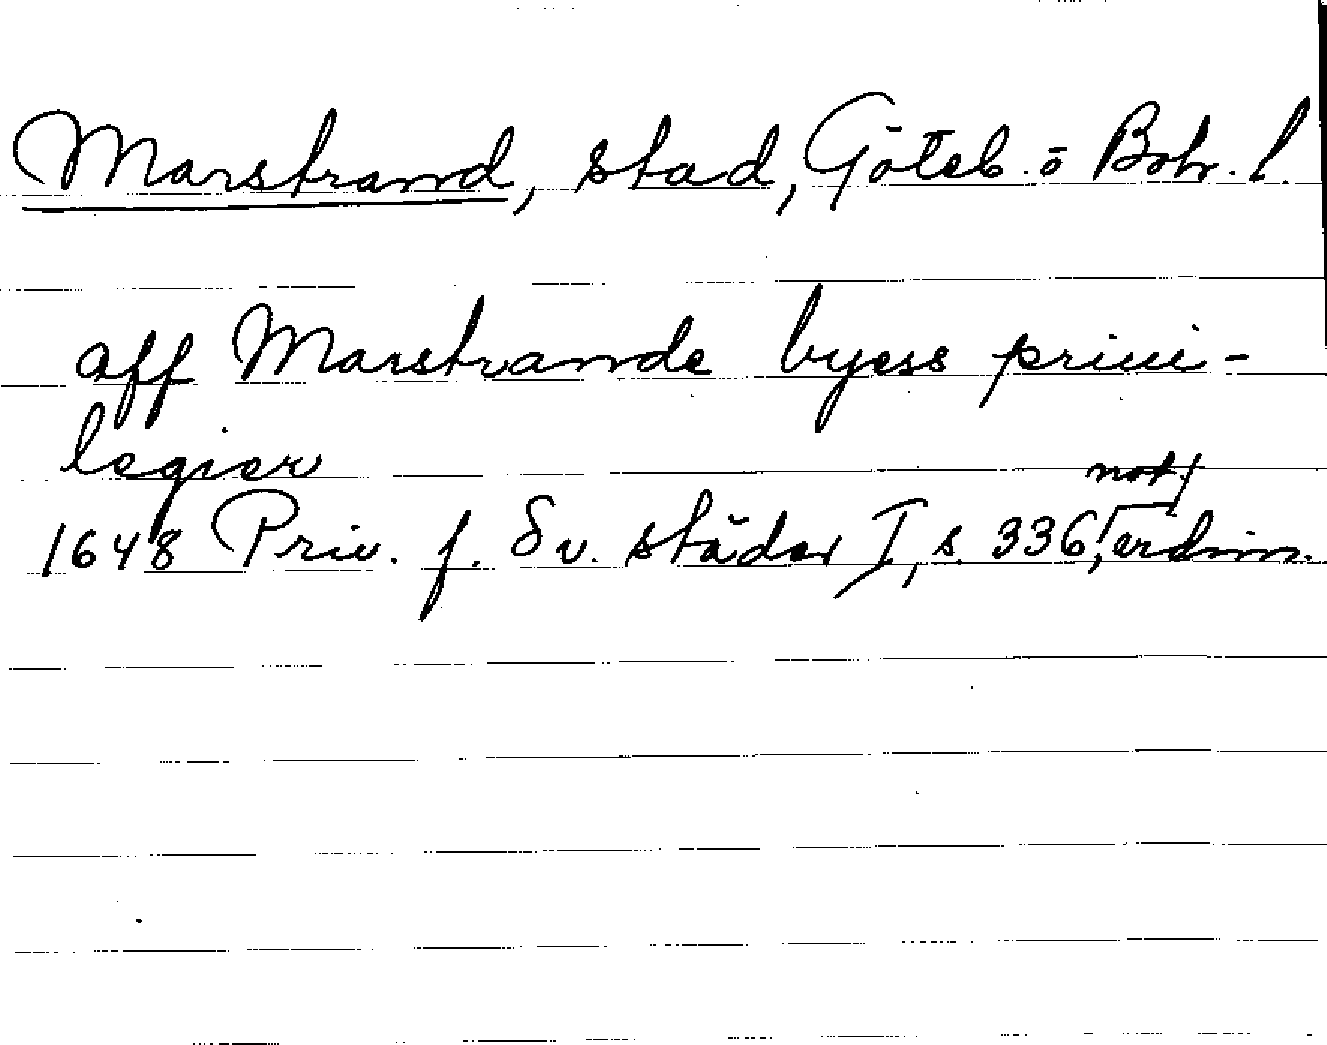 Marstrand, stad, Göteb. o Boh. l.
aff Marstrands byess priui-
legier
not,
1648 Priv. f. Sv. städer I, s. 336,